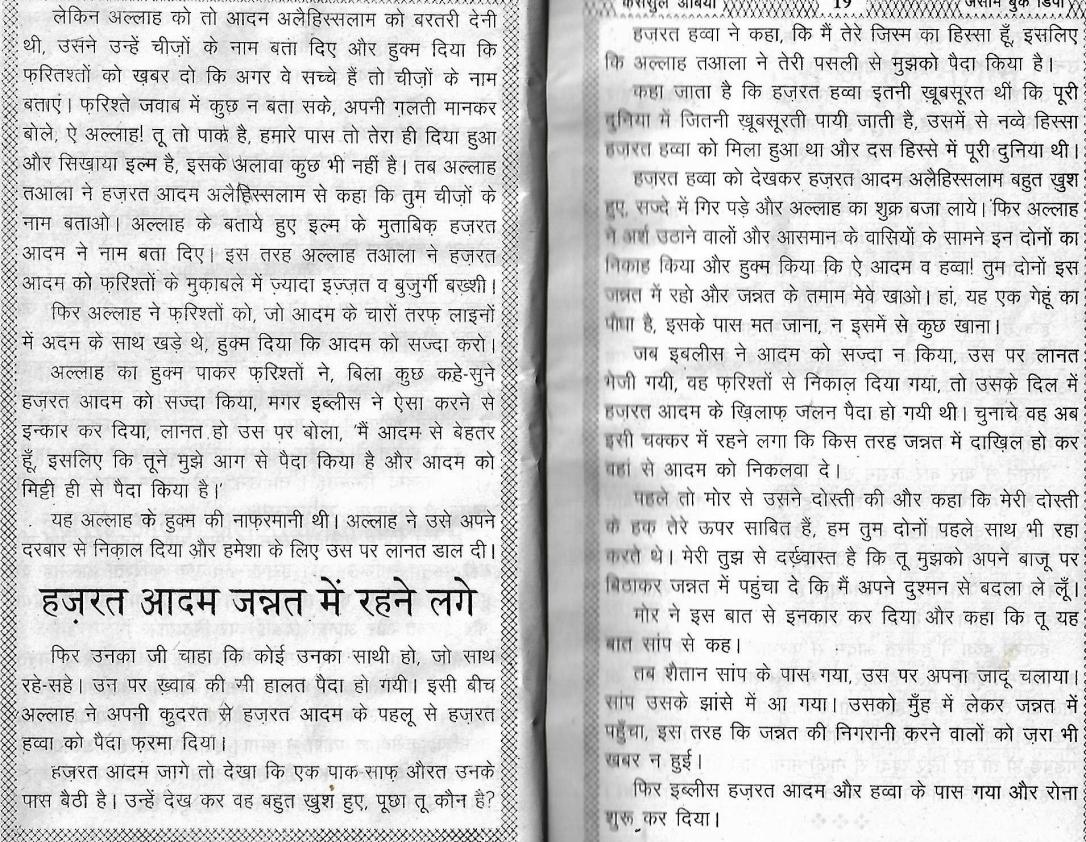 लेकिन अल्लाह को तो आदम अलैहिस्सलाम को बरतरी देनी
थी, उसने उन्हें चीज़ों के नाम बता दिए और हुक्म दिया कि
फ़रितश्तों को ख़बर दो कि अगर वे सच्चे हैं तो चीज़ों के नाम
बताएं। फ़रिश्ते जवाब में कुछ न बता सके, अपनी ग़लती मानकर
बोले, ऐ अल्लाह! तू तो पाक है, हमारे पास तो तेरा ही दिया हुआ
और सिखाया इल्म है, इसके अलावा कुछ भी नहीं है। तब अल्लाह
तआला ने हज़रत आदम अलैहिस्सलाम से कहा कि तुम चीज़ों के
नाम बताओ। अल्लाह के बताये हुए इल्म के मुताबिक़ हज़रत
आदम ने नाम बता दिए। इस तरह अल्लाह तआला ने हज़रत
आदम को फ़रिश्तों के मुक़ाबले में ज़्यादा इज़्ज़त व बुज़ुर्गी बख़्शी।
फिर अल्लाह ने फ़रिश्तों को, जो आदम के चारों तरफ़ लाइनों
में अदम के साथ खड़े थे, हुक्म दिया कि आदम को सज्दा करो।
अल्लाह का हुक्म पाकर फ़रिश्तों ने, बिला कुछ कहे-सुने
हज़रत आदम को सज्दा किया, मगर इब्लीस ने ऐसा करने से
इन्कार कर दिया, लानत हो उस पर बोला, 'मैं आदम से बेहतर
हूँ, इसलिए कि तूने मुझे आग से पैदा किया है और आदम को
मिट्टी ही से पैदा किया है।'
यह अल्लाह के हुक्म की नाफ़रमानी थी। अल्लाह ने उसे अपने
दरबार से निकाल दिया और हमेशा के लिए उस पर लानत डाल दी।
हज़रत आदम जन्नत में रहने लगे
फिर उनका जी चाहा कि कोई उनका साथी हो, जो साथ
रहे-सहे। उन पर ख़्वाब की सी हालत पैदा हो गयी। इसी बीच
अल्लाह ने अपनी कुदरत से हज़रत आदम के पहलू से हज़रत
हव्वा को पैदा फ़रमा दिया।
हज़रत आदम जागे तो देखा कि एक पाक-साफ़ औरत उनके
पास बैठी है। उन्हें देख कर वह बहुत ख़ुश हुए, पूछा तू कौन है?
क़ससुल अंबिया 19 जसीम बुक डिपो
हज़रत हव्वा ने कहा, कि मैं तेरे जिस्म का हिस्सा हूँ, इसलिए
कि अल्लाह तआला ने तेरी पसली से मुझको पैदा किया है।
कहा जाता है कि हज़रत हव्वा इतनी ख़ूबसूरत थीं कि पूरी
दुनिया में जितनी ख़ूबसूरती पायी जाती है, उसमें से नव्वे हिस्सा
हज़रत हव्वा को मिला हुआ था और दस हिस्से में पूरी दुनिया थी।
हज़रत हव्वा को देखकर हज़रत आदम अलैहिस्सलाम बहुत खुश
हुए, सज्दे में गिर पड़े और अल्लाह का शुक्र बजा लाये। फिर अल्लाह
ने अर्श उठाने वालों और आसमान के वासियों के सामने इन दोनों का
निकाह किया और हुक्म किया कि ऐ आदम व हव्वा! तुम दोनों इस
जन्नत में रहो और जन्नत के तमाम मेवे खाओ। हां, यह एक गेहूं का
पौधा है, इसके पास मत जाना, न इसमें से कुछ खाना।
जब इबलीस ने आदम को सज्दा न किया, उस पर लानत
भेजी गयी, वह फ़रिश्तों से निकाल दिया गया, तो उसके दिल में
हज़रत आदम के ख़िलाफ़ जलन पैदा हो गयी थी। चुनांचे वह अब
इसी चक्कर में रहने लगा कि किस तरह जन्नत में दाख़िल हो कर
वहां से आदम को निकलवा दे।
पहले तो मोर से उसने दोस्ती की और कहा कि मेरी दोस्ती
के हक़ तेरे ऊपर साबित हैं, हम तुम दोनों पहले साथ भी रहा
करते थे। मेरी तुझ से दर्ख़्वास्त है कि तू मुझको अपने बाजू पर
बिठाकर जन्नत में पहुंचा दे कि मैं अपने दुश्मन से बदला ले लूँ।
मोर ने इस बात से इनकार कर दिया और कहा कि तू यह
बात सांप से कह।
तब शैतान सांप के पास गया, उस पर अपना जादू चलाया।
सांप उसके झांसे में आ गया। उसको मुँह में लेकर जन्नत में
पहुँचा, इस तरह कि जन्नत की निगरानी करने वालों को ज़रा भी
ख़बर न हुई।
फिर इब्लीस हज़रत आदम और हव्वा के पास गया और रोना
शुरू कर दिया।